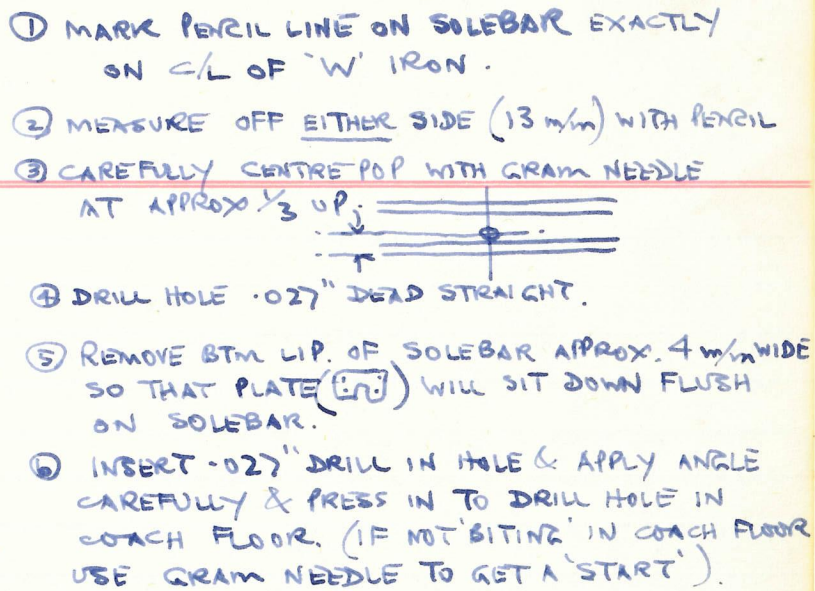 ① MARK PENCIL LINE ON SOLEBAR EXACTLY
ON C/L OF 'W' IRON.
② MEASURE OFF EITHER SIDE (13 m/m) WITH PENCIL
③ CAREFULLY CENTRE-POP WITH GRAM NEEDLE
AT APPROX 1/3 UP;
④ DRILL HOLE .027" DEAD STRAIGHT.
⑤ REMOVE BTM LIP. OF SOLEBAR APPROX. 4 m/m WIDE
SO THAT PLATE ( ) WILL SIT DOWN FLUSH
ON SOLEBAR.
⑥ INSERT .027" DRILL IN HOLE & APPLY ANGLE
CAREFULLY & PRESS IN TO DRILL HOLE IN
COACH FLOOR. (IF NOT 'BITING' IN COACH FLOOR
USE GRAM NEEDLE TO GET A 'START').